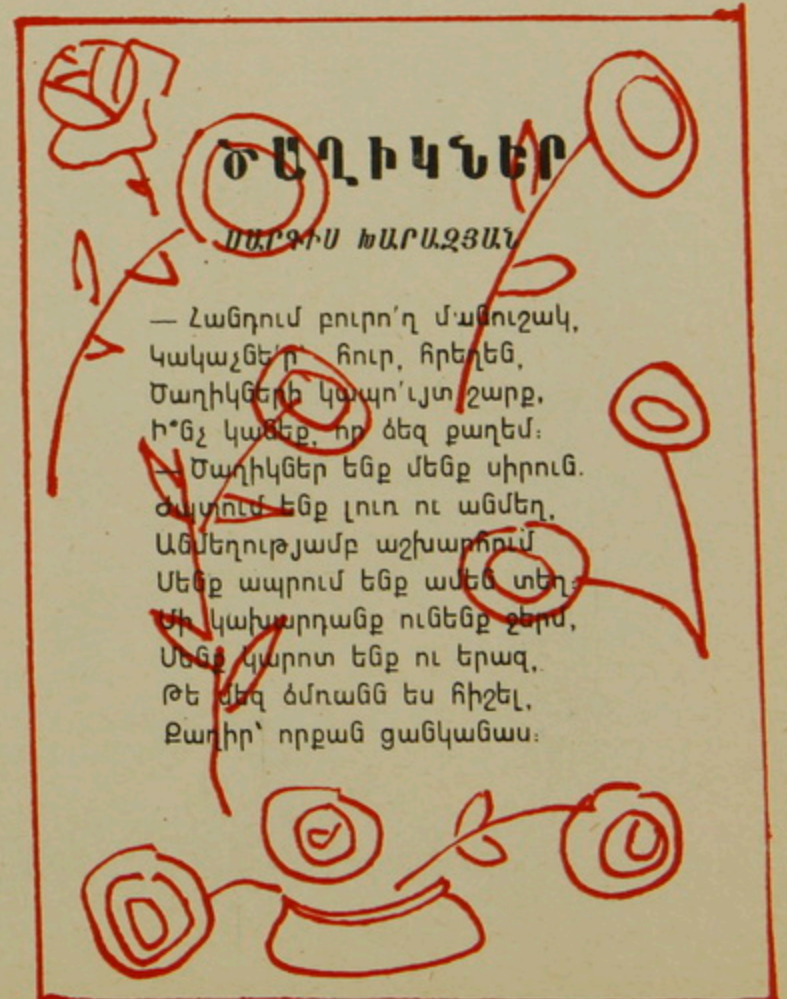 ԾԱՂԻԿՆԵՐ
ՍԱՐԳԻՍ ԽԱՐԱԶՅԱՆ
— Հանդում բուրո՛ղ մանուշակ,
Կակաչնե՛ր՝ հուր, հրեղեն,
Ծաղիկների կապո՛ւյտ շարք,
Ի՞նչ կանեք, որ ձեզ քաղեմ։
— Ծաղիկներ ենք մենք սիրուն.
Ժպտում ենք լուռ ու անմեղ,
Անմեղությամբ աշխարհում
Մենք ապրում ենք ամեն տեղ։
Մի կախարդանք ունենք ջերմ,
Մենք կարոտ ենք ու երազ,
Թե մեզ ձմռանն ես հիշել,
Քաղիր՝ որքան ցանկանաս։